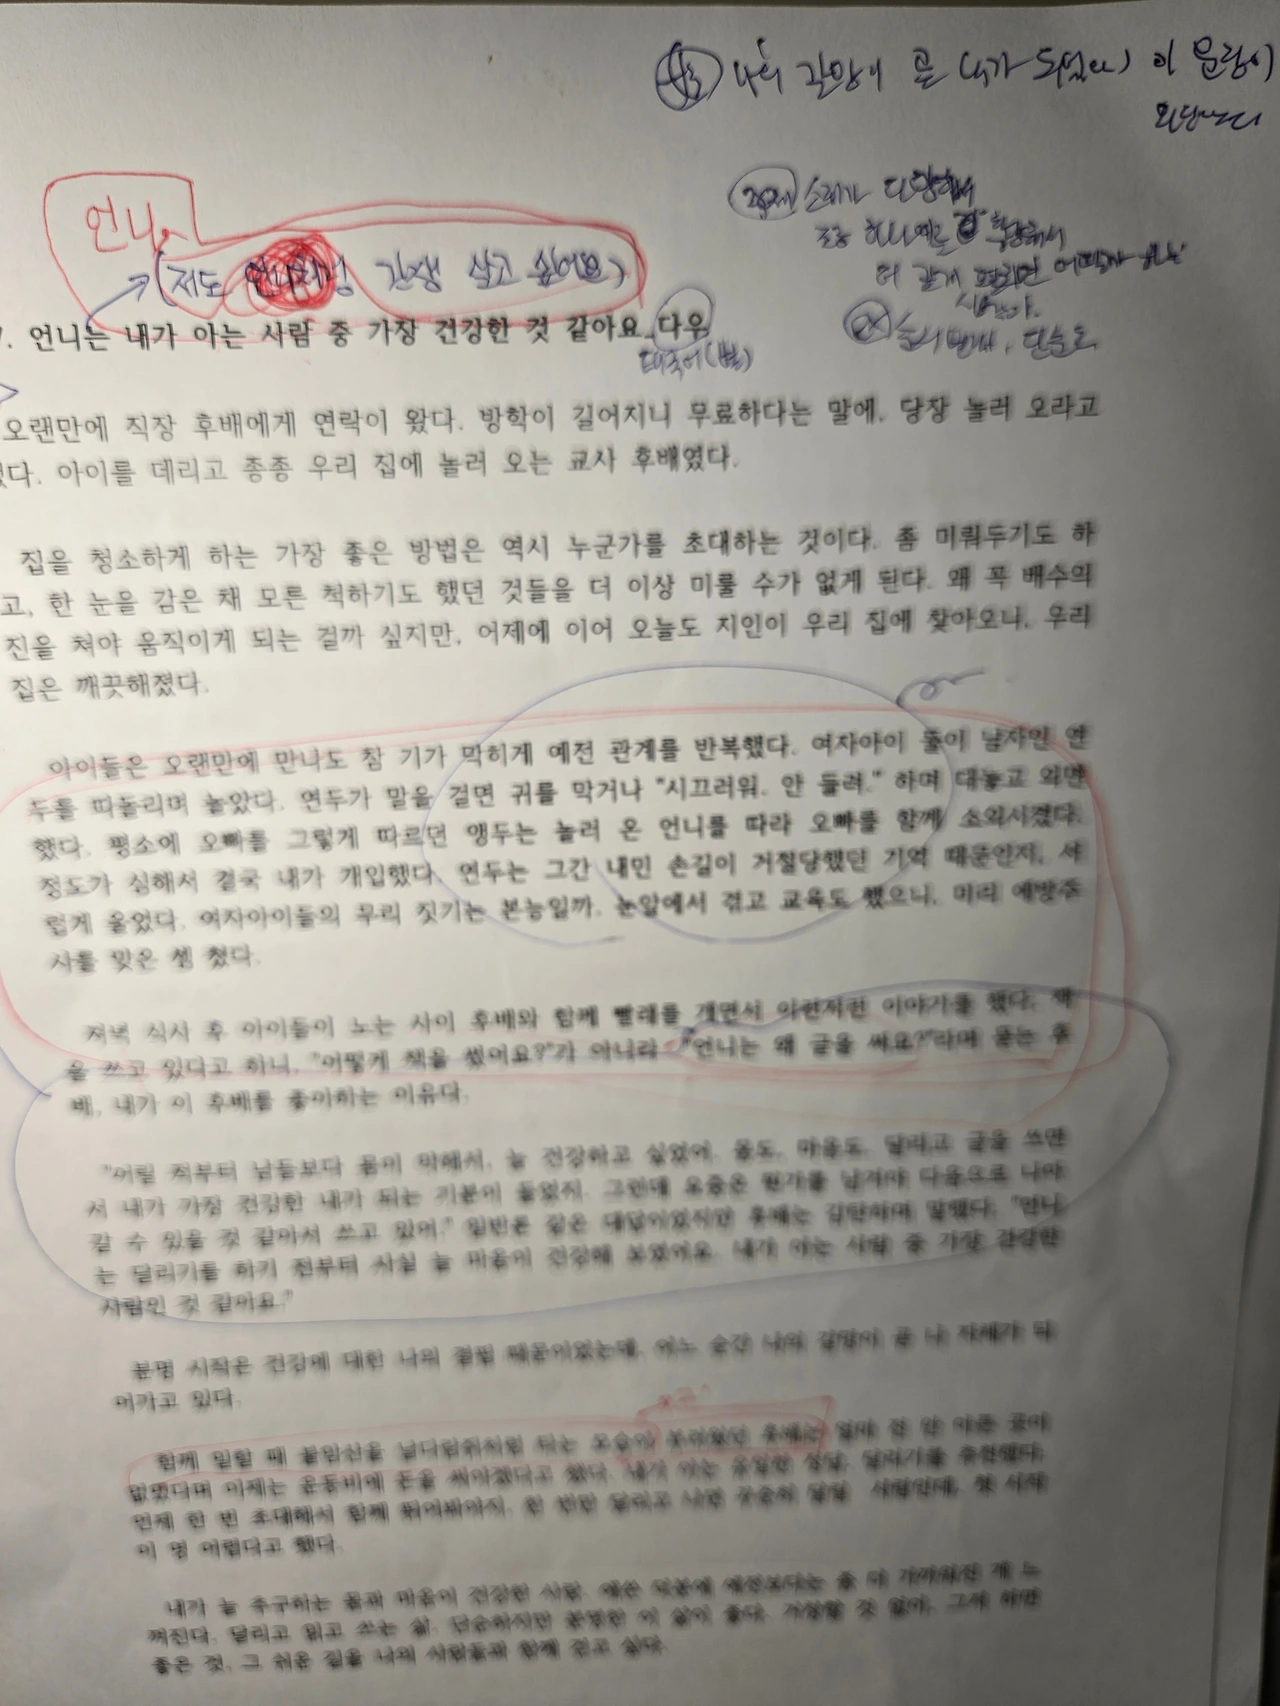 나의 갈망이 곧 (내가 되었다) 이 문장이
와닿는다
소재가 다양해서
조금 하나예로 확장해서
더 길게 표현하면 어떨까
언니
(저도 언니처럼 갓생 살고 싶어요)
7. 언니는 내가 아는 사람 중 가장 건강한 것 같아요_다우
태국어(뿌)
순서 단순
오랜만에 직장 후배에게 연락이 왔다. 방학이 길어지니 무료하다는 말에, 당장 놀러 오라고
했다. 아이를 데리고 종종 우리 집에 놀러 오는 교사 후배였다.
집을 청소하게 하는 가장 좋은 방법은 역시 누군가를 초대하는 것이다. 좀 미뤄두기도 하
고, 한 눈을 감은 채 모른 척하기도 했던 것들을 더 이상 미룰 수가 없게 된다. 왜 꼭 배수의
진을 쳐야 움직이게 되는 걸까 싶지만, 어제에 이어 오늘도 지인이 우리 집에 찾아오니, 우리
집은 깨끗해졌다.
아이들은 오랜만에 만나도 참 기가 막히게 예전 관계를 반복했다. 여자아이 둘이 남자인 연
두를 따돌리며 놀았다. 연두가 말을 걸면 귀를 막거나 "시끄러워. 안 들려." 하며 대놓고 외면
했다. 평소에 오빠를 그렇게 따르던 앵두는 놀러 온 언니를 따라 오빠를 함께 소외시켰다.
정도가 심해서 결국 내가 개입했다. 연두는 그간 내민 손길이 거절당했던 기억 때문인지, 서
럽게 울었다. 여자아이들의 무리 짓기는 본능일까. 눈앞에서 겪고 교육도 했으니, 미리 예방주
사를 맞은 셈 쳤다.
저녁 식사 후 아이들이 노는 사이 후배와 함께 빨래를 개면서 이런저런 이야기를 했다. 책
을 쓰고 있다고 하니, "어떻게 책을 썼어요?"가 아니라 "언니는 왜 글을 써요?"라며 묻는 후
배, 내가 이 후배를 좋아하는 이유다.
"어릴 적부터 남들보다 몸이 약해서, 늘 건강하고 싶었어. 몸도, 마음도. 달리고 글을 쓰면
서 내가 가장 건강한 내가 되는 기분이 들었지. 그런데 요즘은 뭔가를 남겨야 다음으로 나아
갈 수 있을 것 같아서 쓰고 있어." 일반론 같은 대답이었지만 후배는 감탄하며 말했다. "언니
는 달리기를 하기 전부터 사실 늘 마음이 건강해 보였어요. 내가 아는 사람 중 가장 건강한
사람인 것 같아요."
분명 시작은 건강에 대한 나의 결핍 때문이었는데, 어느 순간 나의 갈망이 곧 나 자체가 되
어가고 있다.
함께 일할 때 붙임성을 날다람쥐처럼 되는 모습이 후배는 얼마 전 안 아픈 곳이
없었다며 이제는 운동비에 돈을 써야겠다고 했다. 내가 아는 유일한 정답, 달리기를 추천했다.
언제 한 번 초대해서 함께 뛰어봐야지. 한 번만 달리고 나면 꾸준히 달릴 사람인데, 첫 시작
이 영 어렵다고 했다.
내가 늘 추구하는 몸과 마음이 건강한 사람. 애쓴 덕분에 예전보다는 좀 더 가까워진 게 느
껴진다. 달리고 읽고 쓰는 삶. 단순하지만 분명한 이 삶이 좋다. 거창할 것 없이, 그저 하면
좋은 것, 그 쉬운 길을 나의 사람들과 함께 걷고 싶다.